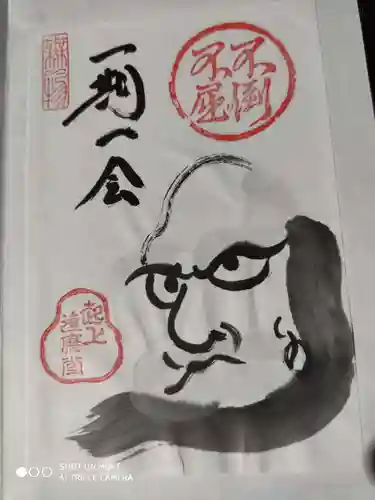 不倒
不屈
一期一会
起上
SHOT ON MI 9T
AI TRIPLE CAMERA